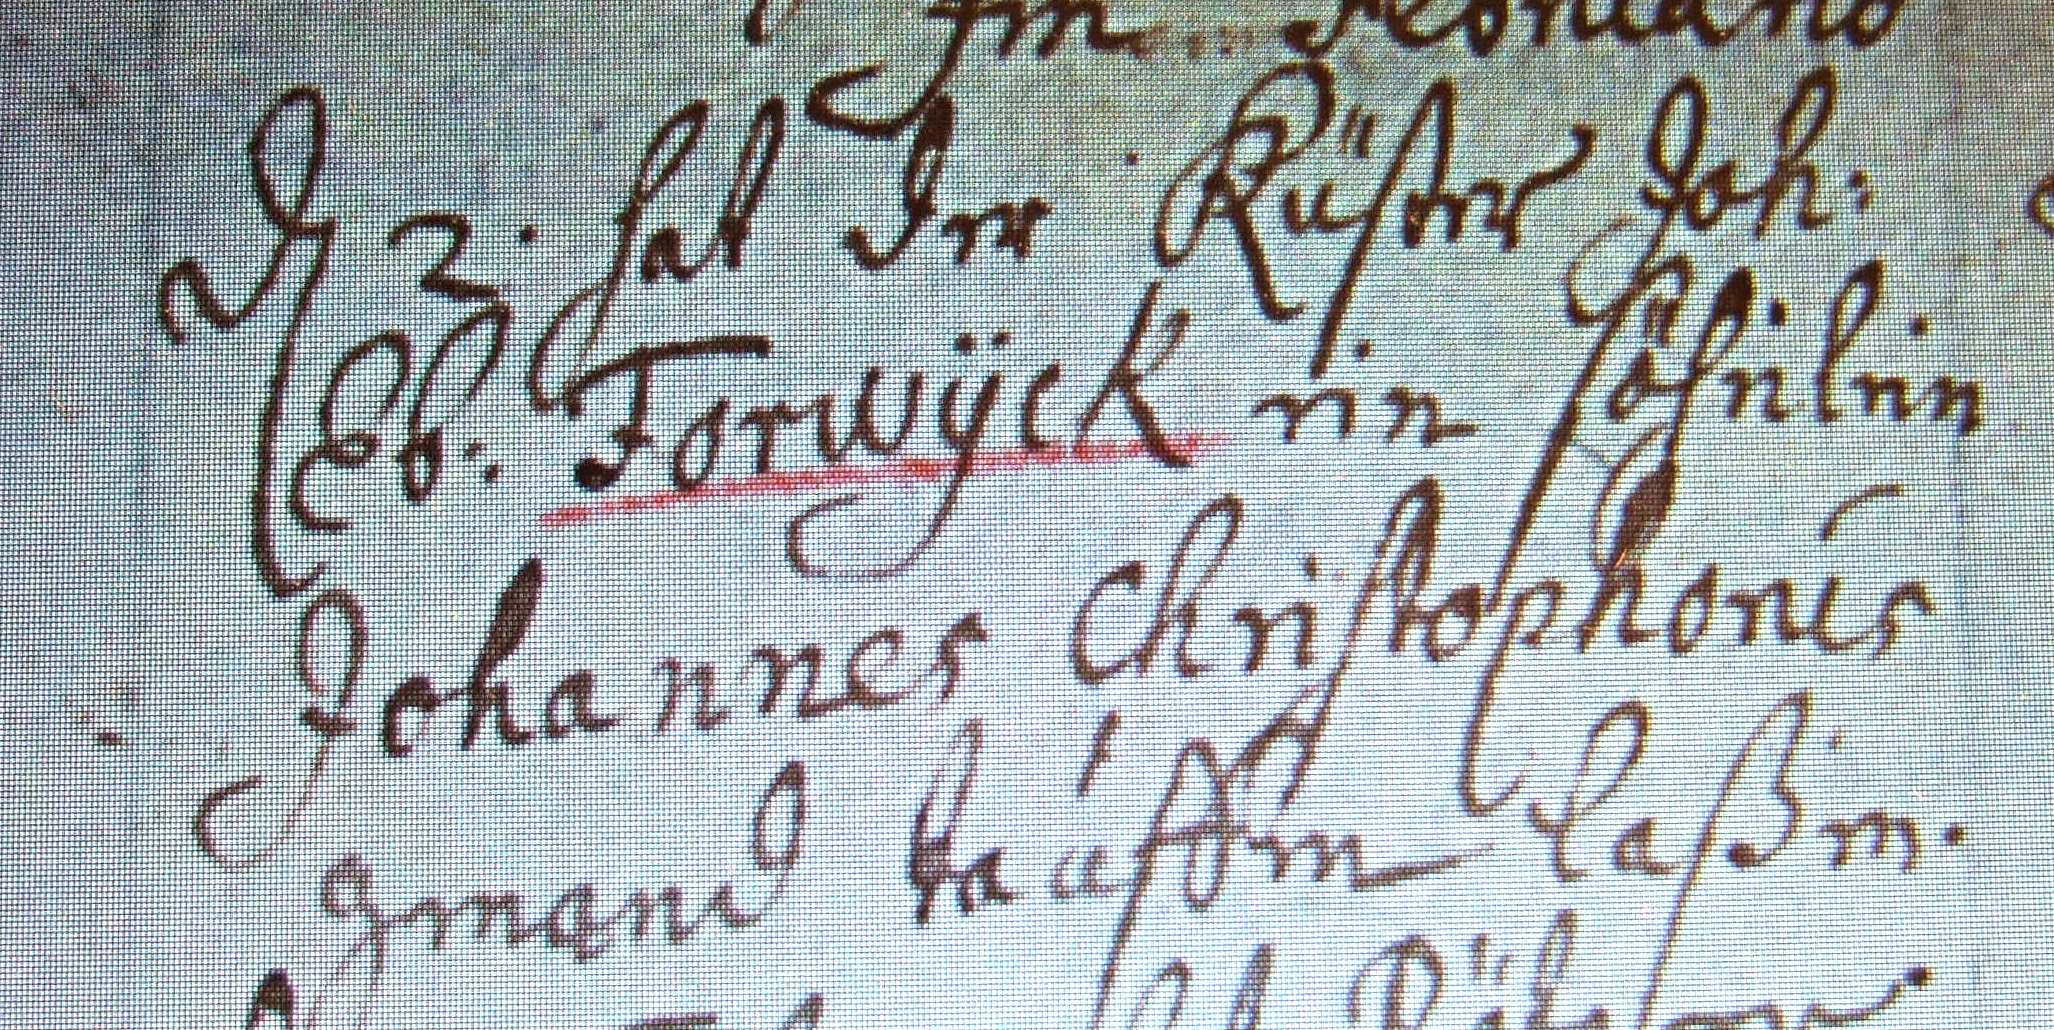 Leoniano
D 2. hat der Küster Joh:
Eb: Torwÿck ein Söhnlein
Johannes Christophorus
genand tauffen laßen.